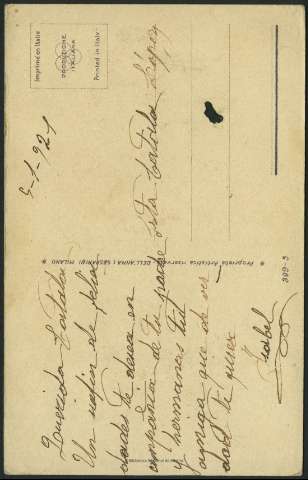 Imprimé en Italie
PRODUZIONE
ITALIANA
Printed in Italy
5-1-921
Srta Catalina López
Proprietà Artistica riservata
DELL'ANNA & GASPARINI MILANO
399-3
Querida Catalina
Un sin fin de felici
dades te desea en
compañía de tu padre
y hermanas tu
amiga que de ver
dad te quier
Isabel